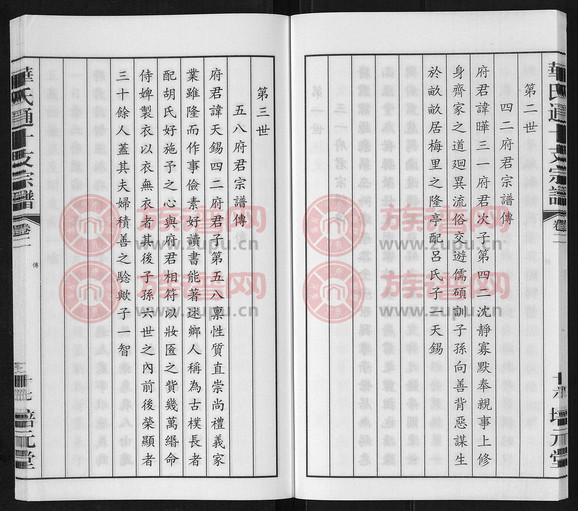 第二世
四二府君宗譜傳
府君諱曄三一府君次子第四二沈靜寡默奉親事上修
身齊家之道迥異流俗交遊儒碩訓子孫向善背惡謀生
於畝畝居梅里之隆亭配呂氏子一天錫
華氏通十支宗譜
卷二
培元堂
第三世
五八府君宗譜傳
府君諱天錫四二府君子第五八稟性質直崇尚禮義家
業雖隆而作事儉素好讀書能著述鄉人稱為古樸長者
配胡氏好施予之心與府君相符以妝匳之貲幾萬緡命
侍婢製衣以衣無衣者其後子孫六世之內前後榮顯者
三十餘人蓋其夫婦積善之騐歟子一智
華氏通十支宗譜
卷二
傳
十七
培元堂
族譜网
www.zupu.cn
族譜网
www.zupu.cn
族譜网
www.zupu.cn
族譜网
www.zupu.cn